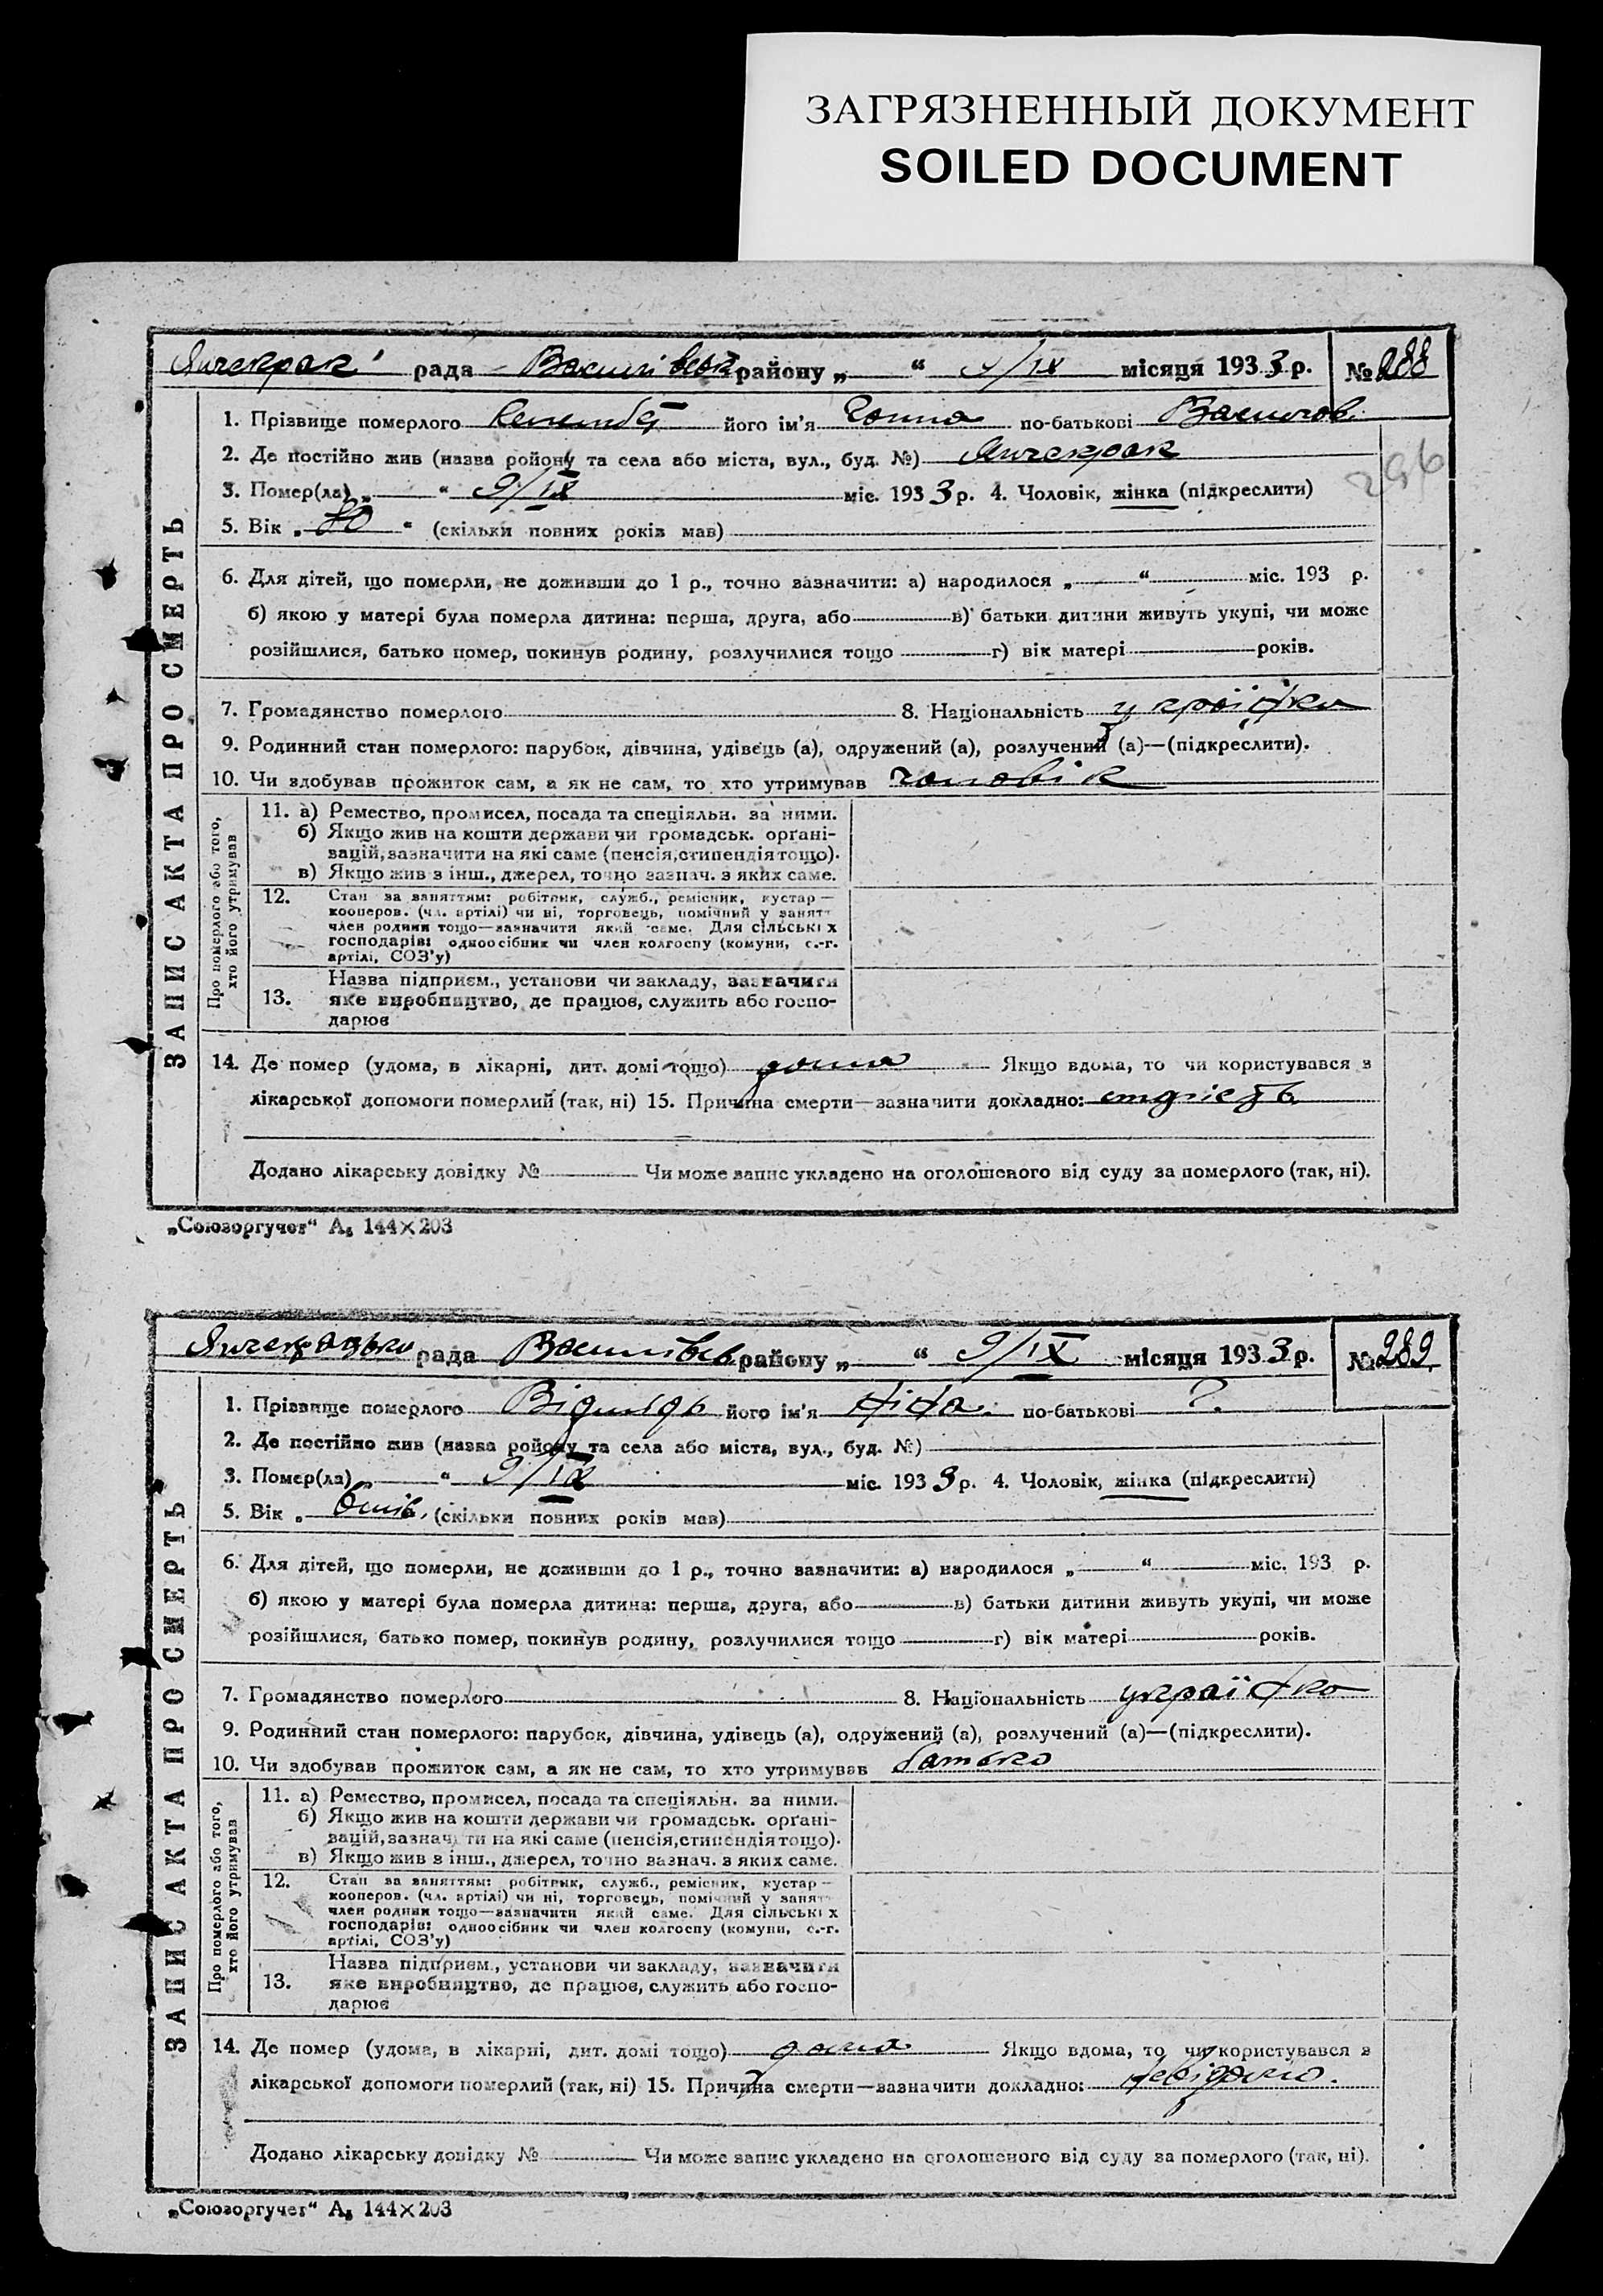 ЗАГРЯЗНЕННЫЙ ДОКУМЕНТ
SOILED DOCUMENT
Янчекрак рада Василівськ району „ “ 9/IX місяця 1933 р. № 288
1. Прізвище померлого його ім'я по-батькові
2. Де постійно жив (назва району та села або міста, вул., буд. №) Янчекрак
296
3. Помер(ла) „ “ 9/IX міс. 1933 р. 4. Чоловік, жінка (підкреслити)
5. Вік „ 80 “ (скільки повних років мав)
6. Для дітей, що померли, не доживши до 1 р., точно зазначити: а) народилося „ “ міс. 193 р.
б) якою у матері була померла дитина: перша, друга, або в) батьки дитини живуть укупі, чи може
розійшлися, батько помер, покинув родину, розлучилися тощо г) вік матері років.
7. Громадянство померлого 8. Національність українка
9. Родинний стан померлого: парубок, дівчина, удівець (а), одружений (а), розлучений (а)—(підкреслити).
10. Чи здобував прожиток сам, а як не сам, то хто утримував чоловік
ЗАПИС АКТА ПРО СМЕРТЬ
Про померлого або того,
хто його утримував
11. а) Ремество, промисел, посада та спеціяльн. за ними.
б) Якщо жив на кошти держави чи громадськ. орґані-
зацій, зазначити на які саме (пенсія, стипендія тощо).
в) Якщо жив з інш., джерел, точно зазнач. з яких саме.
12. Стан за заняттям: робітник, служб., ремісник, кустар—
кооперов. (чл. артілі) чи ні, торговець, помічний у занятт
член родини тощо—зазначити який саме. Для сільських
господарів: одноосібник чи член колгоспу (комуни, с.-г.
артілі, СОЗ'у)
13. Назва підприєм., установи чи закладу, зазначити
яке виробництво, де працює, служить або госпо-
дарює
14. Де помер (удома, в лікарні, дит. домі тощо) дома Якщо вдома, то чи користувався з
лікарської допомоги померлий (так, ні) 15. Причина смерти—зазначити докладно:
Додано лікарську довідку № Чи може запис укладено на оголошеного від суду за померлого (так, ні).
„Союзоргучет“ А₅ 144×203
Янчекрацько рада Василівськ району „ “ 9/IX місяця 1933 р. № 289
1. Прізвище померлого його ім'я Ніна по-батькові ?
2. Де постійно жив (назва району та села або міста, вул., буд. №)
3. Помер(ла) „ “ 9/IX міс. 1933 р. 4. Чоловік, жінка (підкреслити)
5. Вік „ (скільки повних років мав)
6. Для дітей, що померли, не доживши до 1 р., точно зазначити: а) народилося „ “ міс. 193 р.
б) якою у матері була померла дитина: перша, друга, або в) батьки дитини живуть укупі, чи може
розійшлися, батько помер, покинув родину, розлучилися тощо г) вік матері років.
7. Громадянство померлого 8. Національність українка
9. Родинний стан померлого: парубок, дівчина, удівець (а), одружений (а), розлучений (а)—(підкреслити).
10. Чи здобував прожиток сам, а як не сам, то хто утримував батько
ЗАПИС АКТА ПРО СМЕРТЬ
Про померлого або того,
хто його утримував
11. а) Ремество, промисел, посада та спеціяльн. за ними.
б) Якщо жив на кошти держави чи громадськ. орґані-
зацій, зазначити на які саме (пенсія, стипендія тощо).
в) Якщо жив з інш., джерел, точно зазнач. з яких саме.
12. Стан за заняттям: робітник, служб., ремісник, кустар—
кооперов. (чл. артілі) чи ні, торговець, помічний у занятт
член родини тощо—зазначити який саме. Для сільських
господарів: одноосібник чи член колгоспу (комуни, с.-г.
артілі, СОЗ'у)
13. Назва підприєм., установи чи закладу, зазначити
яке виробництво, де працює, служить або госпо-
дарює
14. Де помер (удома, в лікарні, дит. домі тощо) дома Якщо вдома, то чи користувався з
лікарської допомоги померлий (так, ні) 15. Причина смерти—зазначити докладно: невідомо.
Додано лікарську довідку № Чи може запис укладено на оголошеного від суду за померлого (так, ні).
„Союзоргучет“ А₅ 144×203